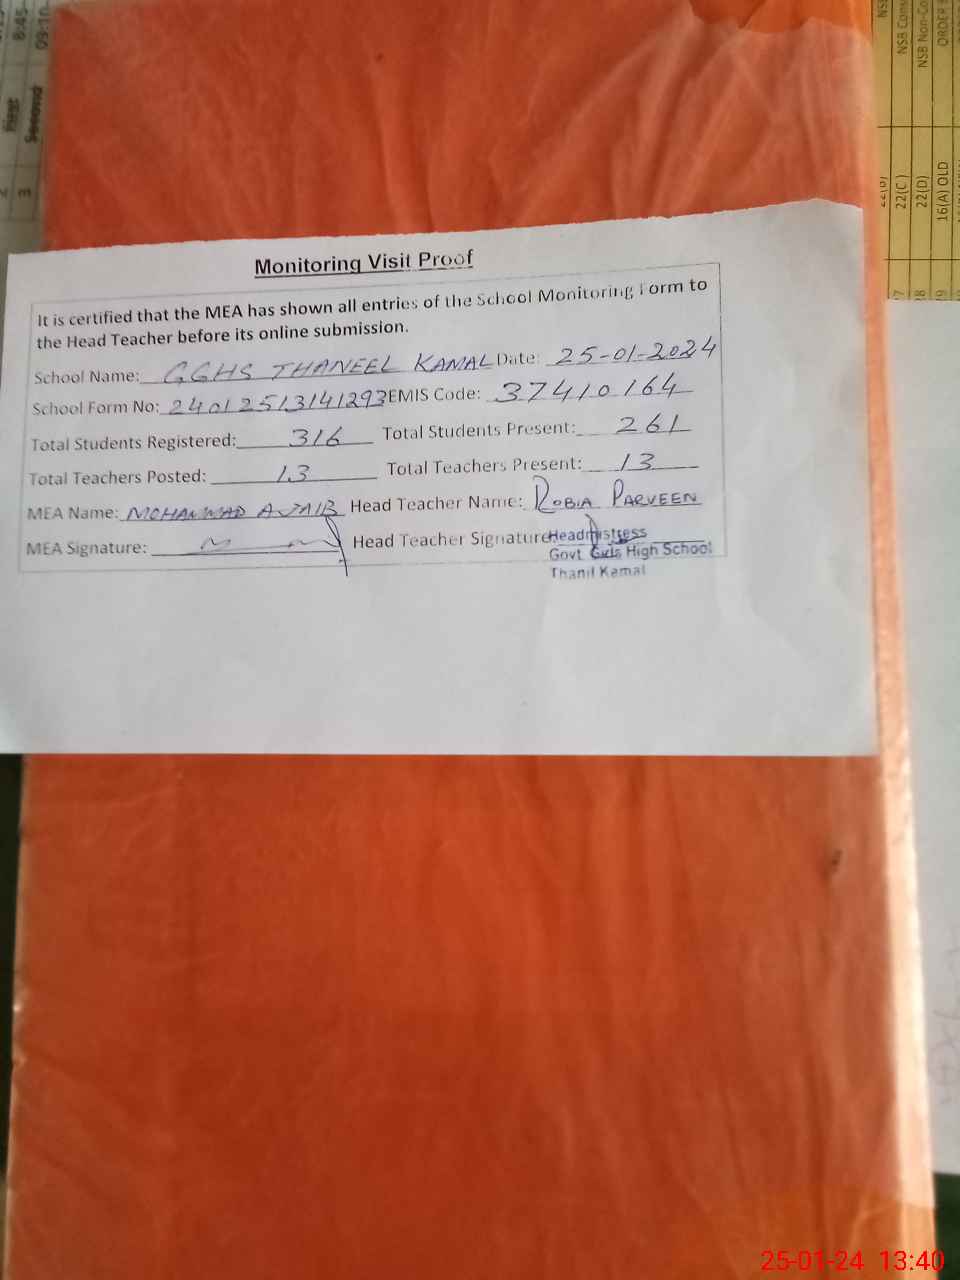 8:45
09:10
First
Second
3
NSB Non-Co
22(C)
22(D)
16(A) OLD
Monitoring Visit Proof
It is certified that the MEA has shown all entries of the School Monitoring Form to
the Head Teacher before its online submission.
School Name: GGHS THANEEL KAMAL Date: 25-01-2024
School Form No: 24012513141293 EMIS Code: 37410164
Total Students Registered: 316 Total Students Present: 261
Total Teachers Posted: 13 Total Teachers Present: 13
MEA Name: MOHAMMAD AJAIB Head Teacher Name: ROBIA PARVEEN
MEA Signature: Head Teacher Signature
Headmistress
Govt. Girls High School
Thanil Kamal
25-01-24 13:40